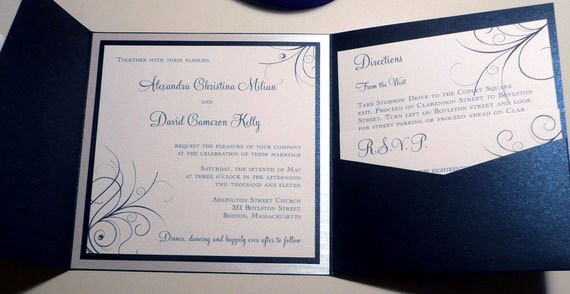 Together with their families,
Alexandra Christina Milian
and
David Cameron Kelly
request the pleasure of your company
at the celebration of their marriage
Saturday, the seventh of May
at three o'clock in the afternoon
two thousand and eleven
Arlington Street Church
351 Boylston Street
Boston, Massachusetts
Dinner, dancing and happily ever after to follow
Directions
From the West
Take Storrow Drive to the Copley Square
exit. Proceed on Clarendon Street to Boylston
Street. Turn left on Boylston street and look
for street parking or proceed ahead on Clar
R.S.V.P.